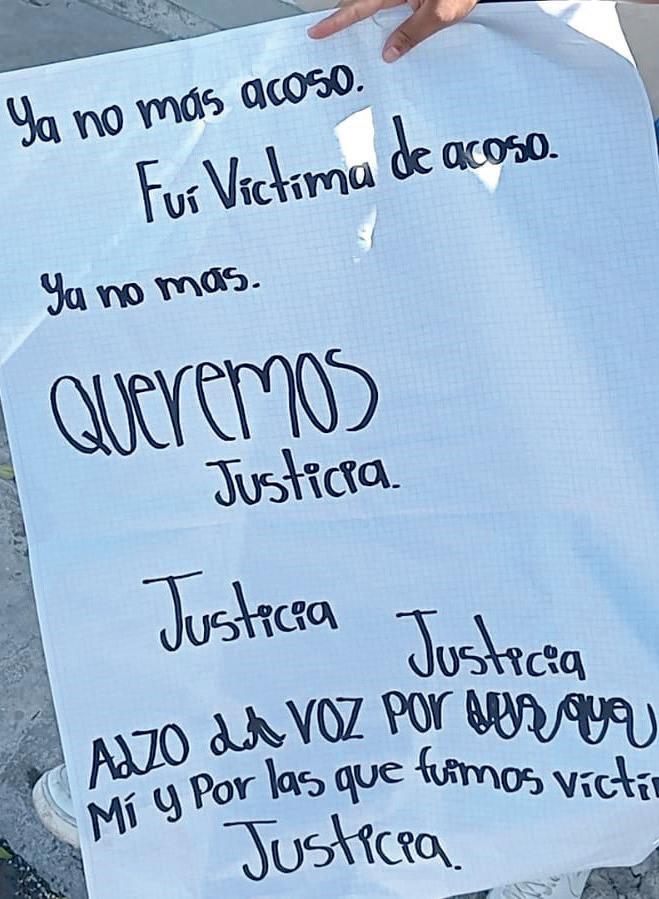 Ya no más acoso.
Fuí Víctima de acoso.
Ya no mas.
Queremos
Justicia.
Justicia
Justicia
Alzo la voz por
Mí y Por las que fuimos vícti
Justicia.